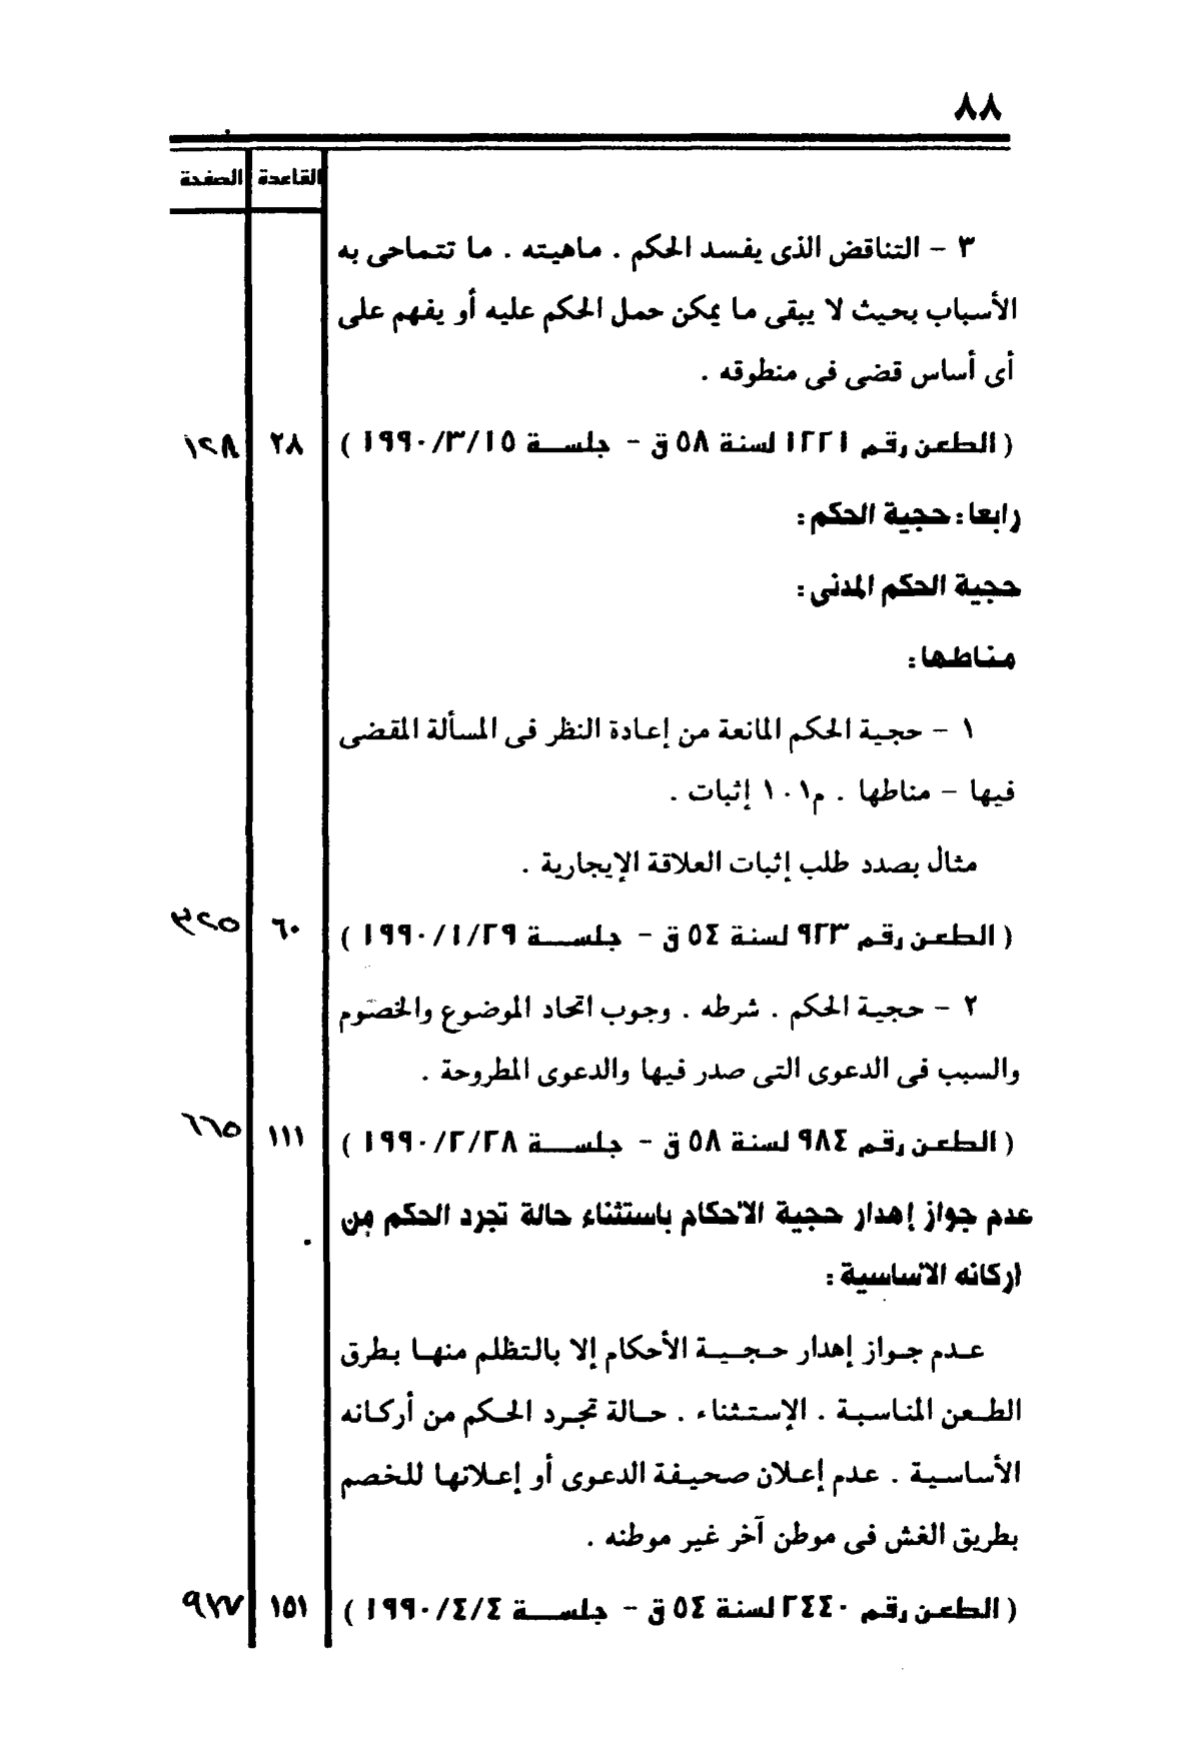 ٨٨
القاعدة الصفحة
٣ - التناقض الذى يفسد الحكم . ماهيته . ما تتماحى به
الأسباب بحيث لا يبقى ما يمكن حمل الحكم عليه أو يفهم على
أى أساس قضى فى منطوقه .
( الطعن رقم ١٢٢١ لسنة ٥٨ ق - جلسة ١٩٩٠/٣/١٥ ) ٢٨ ١٢٨
رابعا : حجية الحكم :
حجية الحكم المدنى :
مناطها :
١ - حجية الحكم المانعة من إعادة النظر فى المسألة المقضى
فيها - مناطها . م١٠١ إثبات .
مثال بصدد طلب إثبات العلاقة الإيجارية .
( الطعن رقم ٩٢٣ لسنة ٥٤ ق - جلسة ١٩٩٠/١/٢٩ ) ٦٠ ٣٢٥
٢ - حجية الحكم . شرطه . وجوب اتحاد الموضوع والخصوم
والسبب فى الدعوى التى صدر فيها والدعوى المطروحة .
( الطعن رقم ٩٨٤ لسنة ٥٨ ق - جلسة ١٩٩٠/٢/٢٨ ) ١١١ ٦٦٥
عدم جواز إهدار حجية الاحكام باستثناء حالة تجرد الحكم من
اركانه الاساسية :
عدم جواز إهدار حجية الأحكام إلا بالتظلم منها بطرق
الطعن المناسبة . الإستثناء . حالة تجرد الحكم من أركانه
الأساسية . عدم إعلان صحيفة الدعوى أو إعلانها للخصم
بطريق الغش فى موطن آخر غير موطنه .
( الطعن رقم ٢٤٤٠ لسنة ٥٤ ق - جلسة ١٩٩٠/٤/٤ ) ١٥١ ٩٧٧